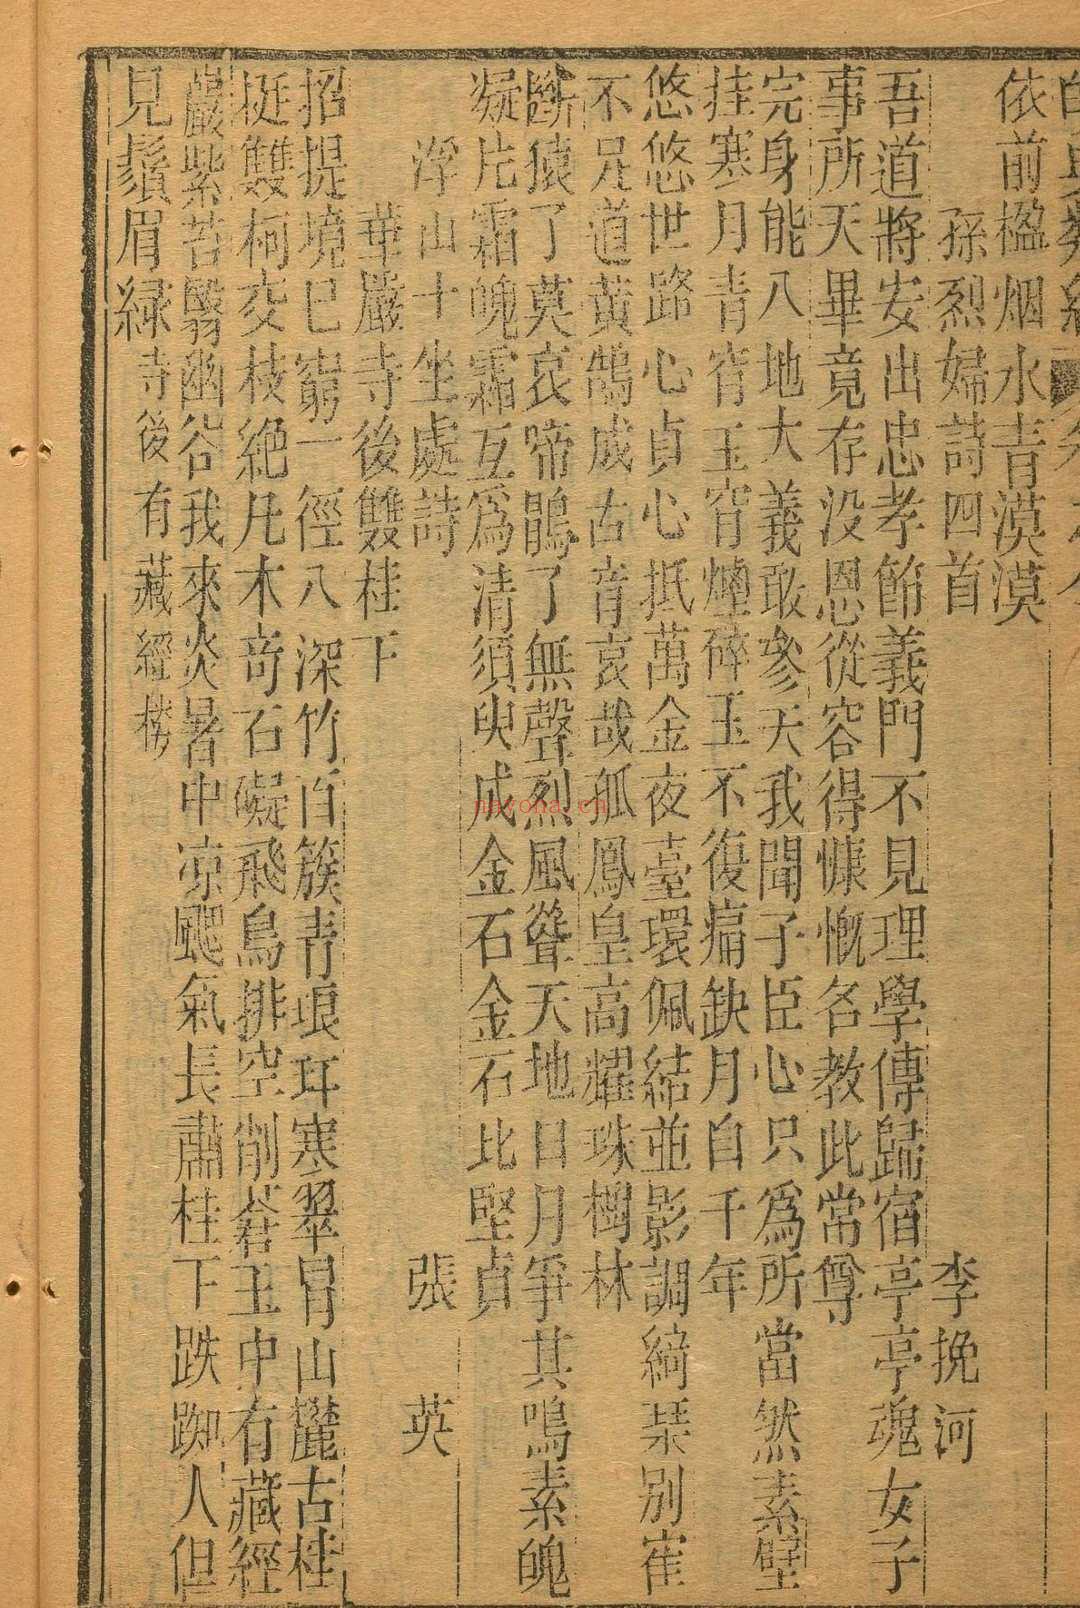 依前楹烟水青漠漠
孫烈婦詩四首 李挽河
吾道將安出忠孝節義門不見理學傳歸宿亭亭魂女子
事所天畢竟存没恩從容得慷慨名教此常尊
完身能入地大義敢參天我聞子臣心只為所當然素壁
挂寒月青宵玉宵煙碎玉不復痛缺月自千年
悠悠世路心貞心抵萬金夜臺環佩結並影調綺琹別寉
不足道黃鵠成古音哀哉孤鳳皇高耀珠樹林
斷猿了莫哀啼鵑了無聲烈風聳天地日月爭其鳴素魄
凝片霜魄霜互爲清須臾成金石金石比堅貞
浮山十坐處詩 張英
華嚴寺後雙桂下
招提境已窮一徑入深竹百簇青琅玕寒翠冐山麓古桂
挺雙柯交枝絶凡木奇石礙飛鳥排空削蒼玉中有藏經
巖紫苔翳幽谷我來炎暑中凉颸氣長肅桂下跌踟人但
見鬚眉緑寺後有藏經楼
nayona.cn